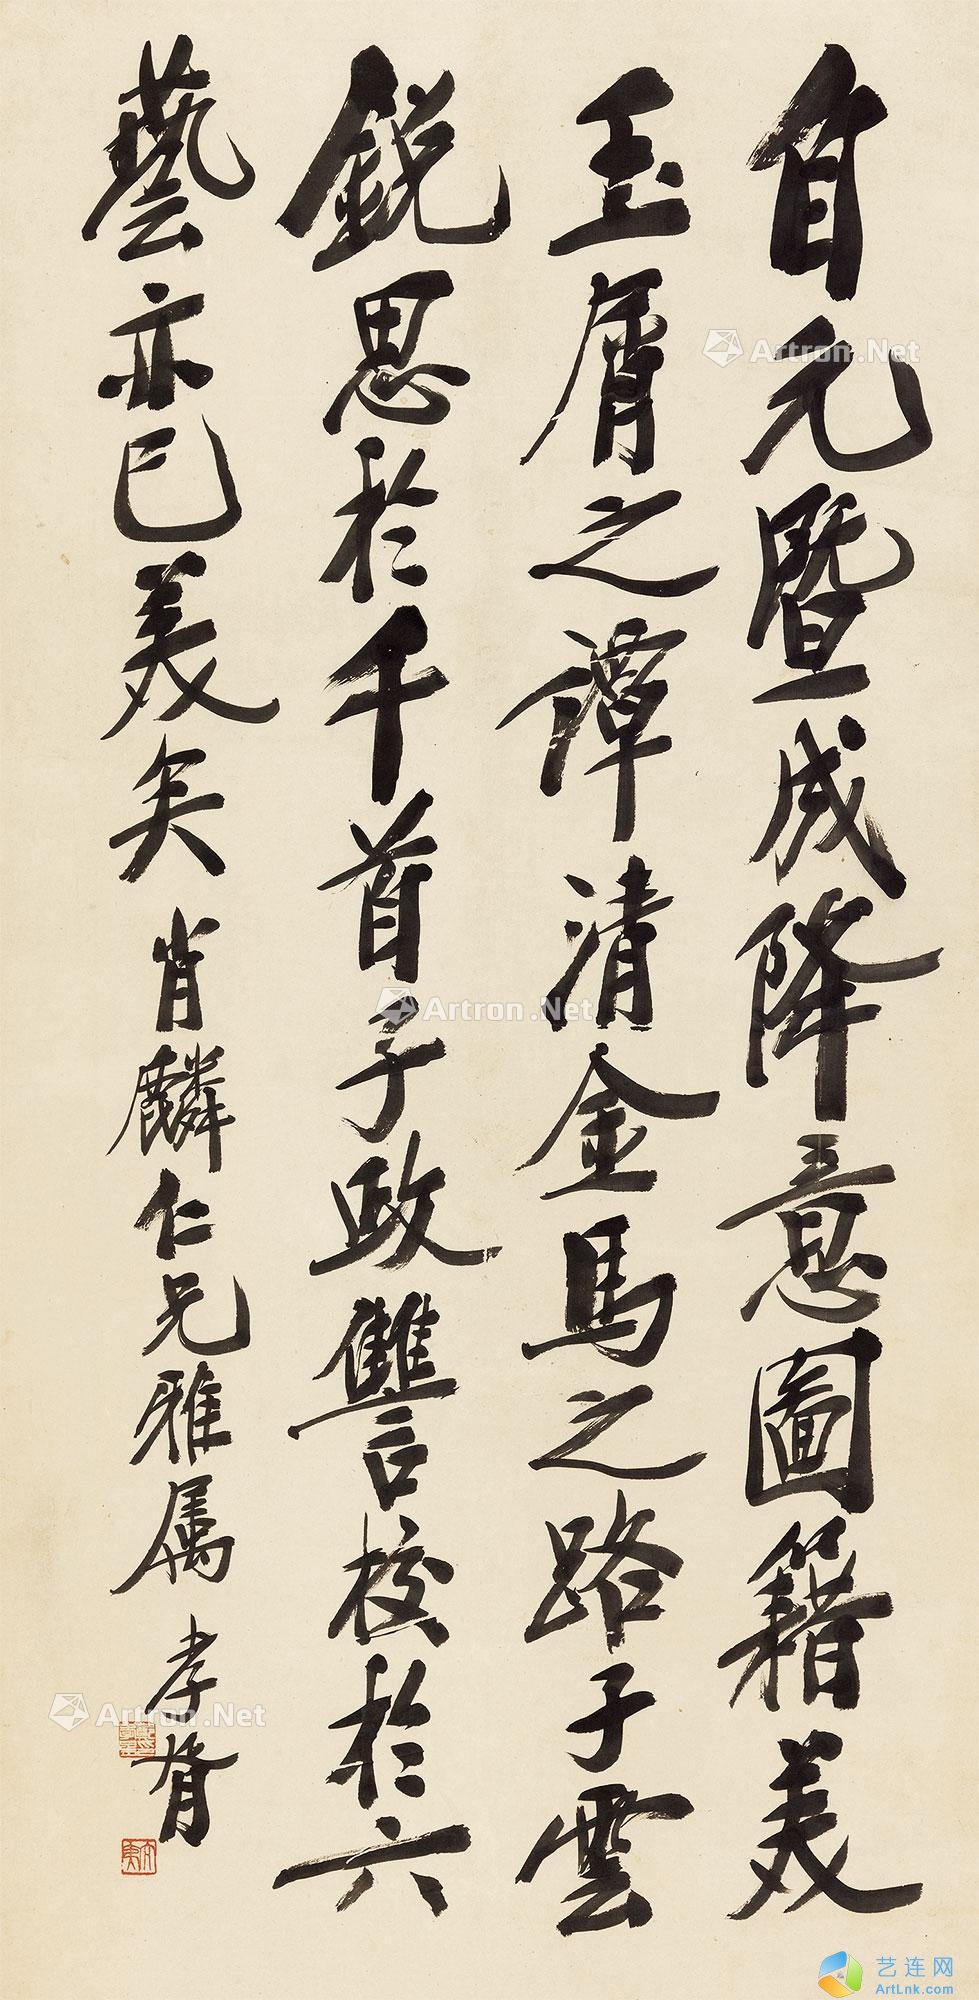 自元暨成降意圖籍美
玉屑之譚清金馬之路子雲
銳思於千首子政讐校於六
藝亦已美矣 肖麟仁兄雅属 孝胥
Artron.Net
Artron.Net
Artron.Net
艺连网
ArtLnk.com